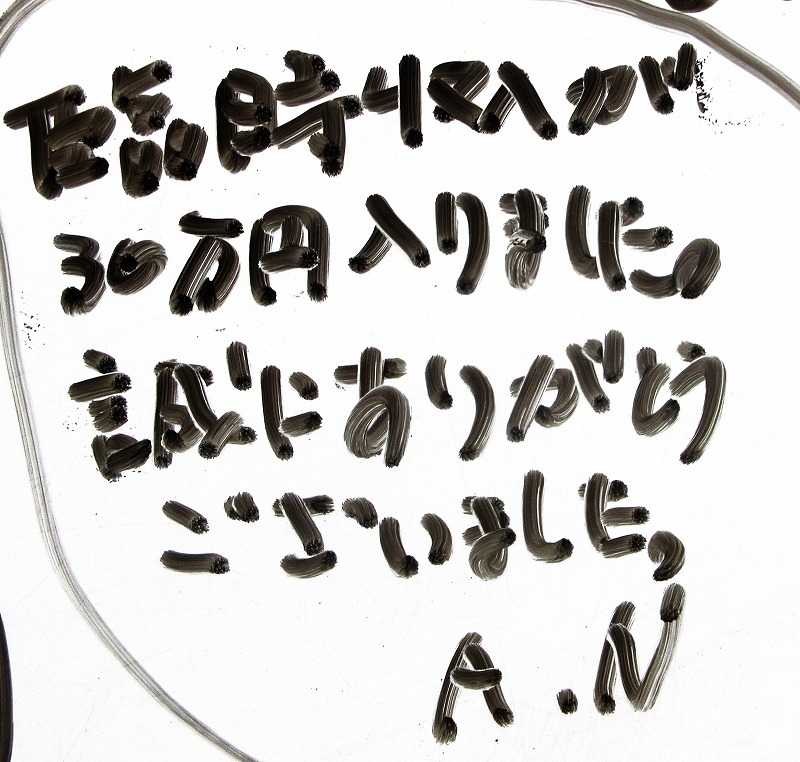 臨時収入が
30万円入りました。
誠にありがとう
ございました。
A.N